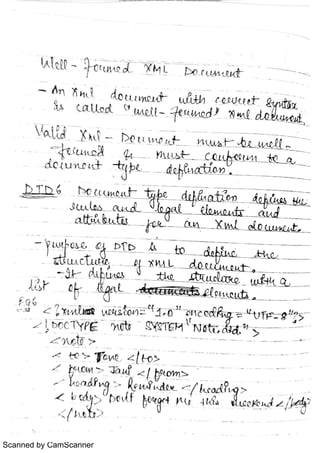 Well - Formed XML Document
- An Xml document with correct Syntax
is called "well-formed" Xml document.
Valid Xml - Document must be well-
formed & must conform to a
document type defination.
DTD: Document type defination defines the
rules and legal elements and
attributes for an Xml document.
- purpose of DTD is to define the
structure of XML document.
- It defines the structure with a
list of legal elements.
EG:
<?xml version="1.0" encoding="UTF-8"?>
<!DOCTYPE note SYSTEM "Note.dtd.">
<note>
<to> Tove </to>
<from> Jani </from>
<heading> Reminder </heading>
<body> Don't forget me this weekend </body>
</note>
Scanned by CamScanner